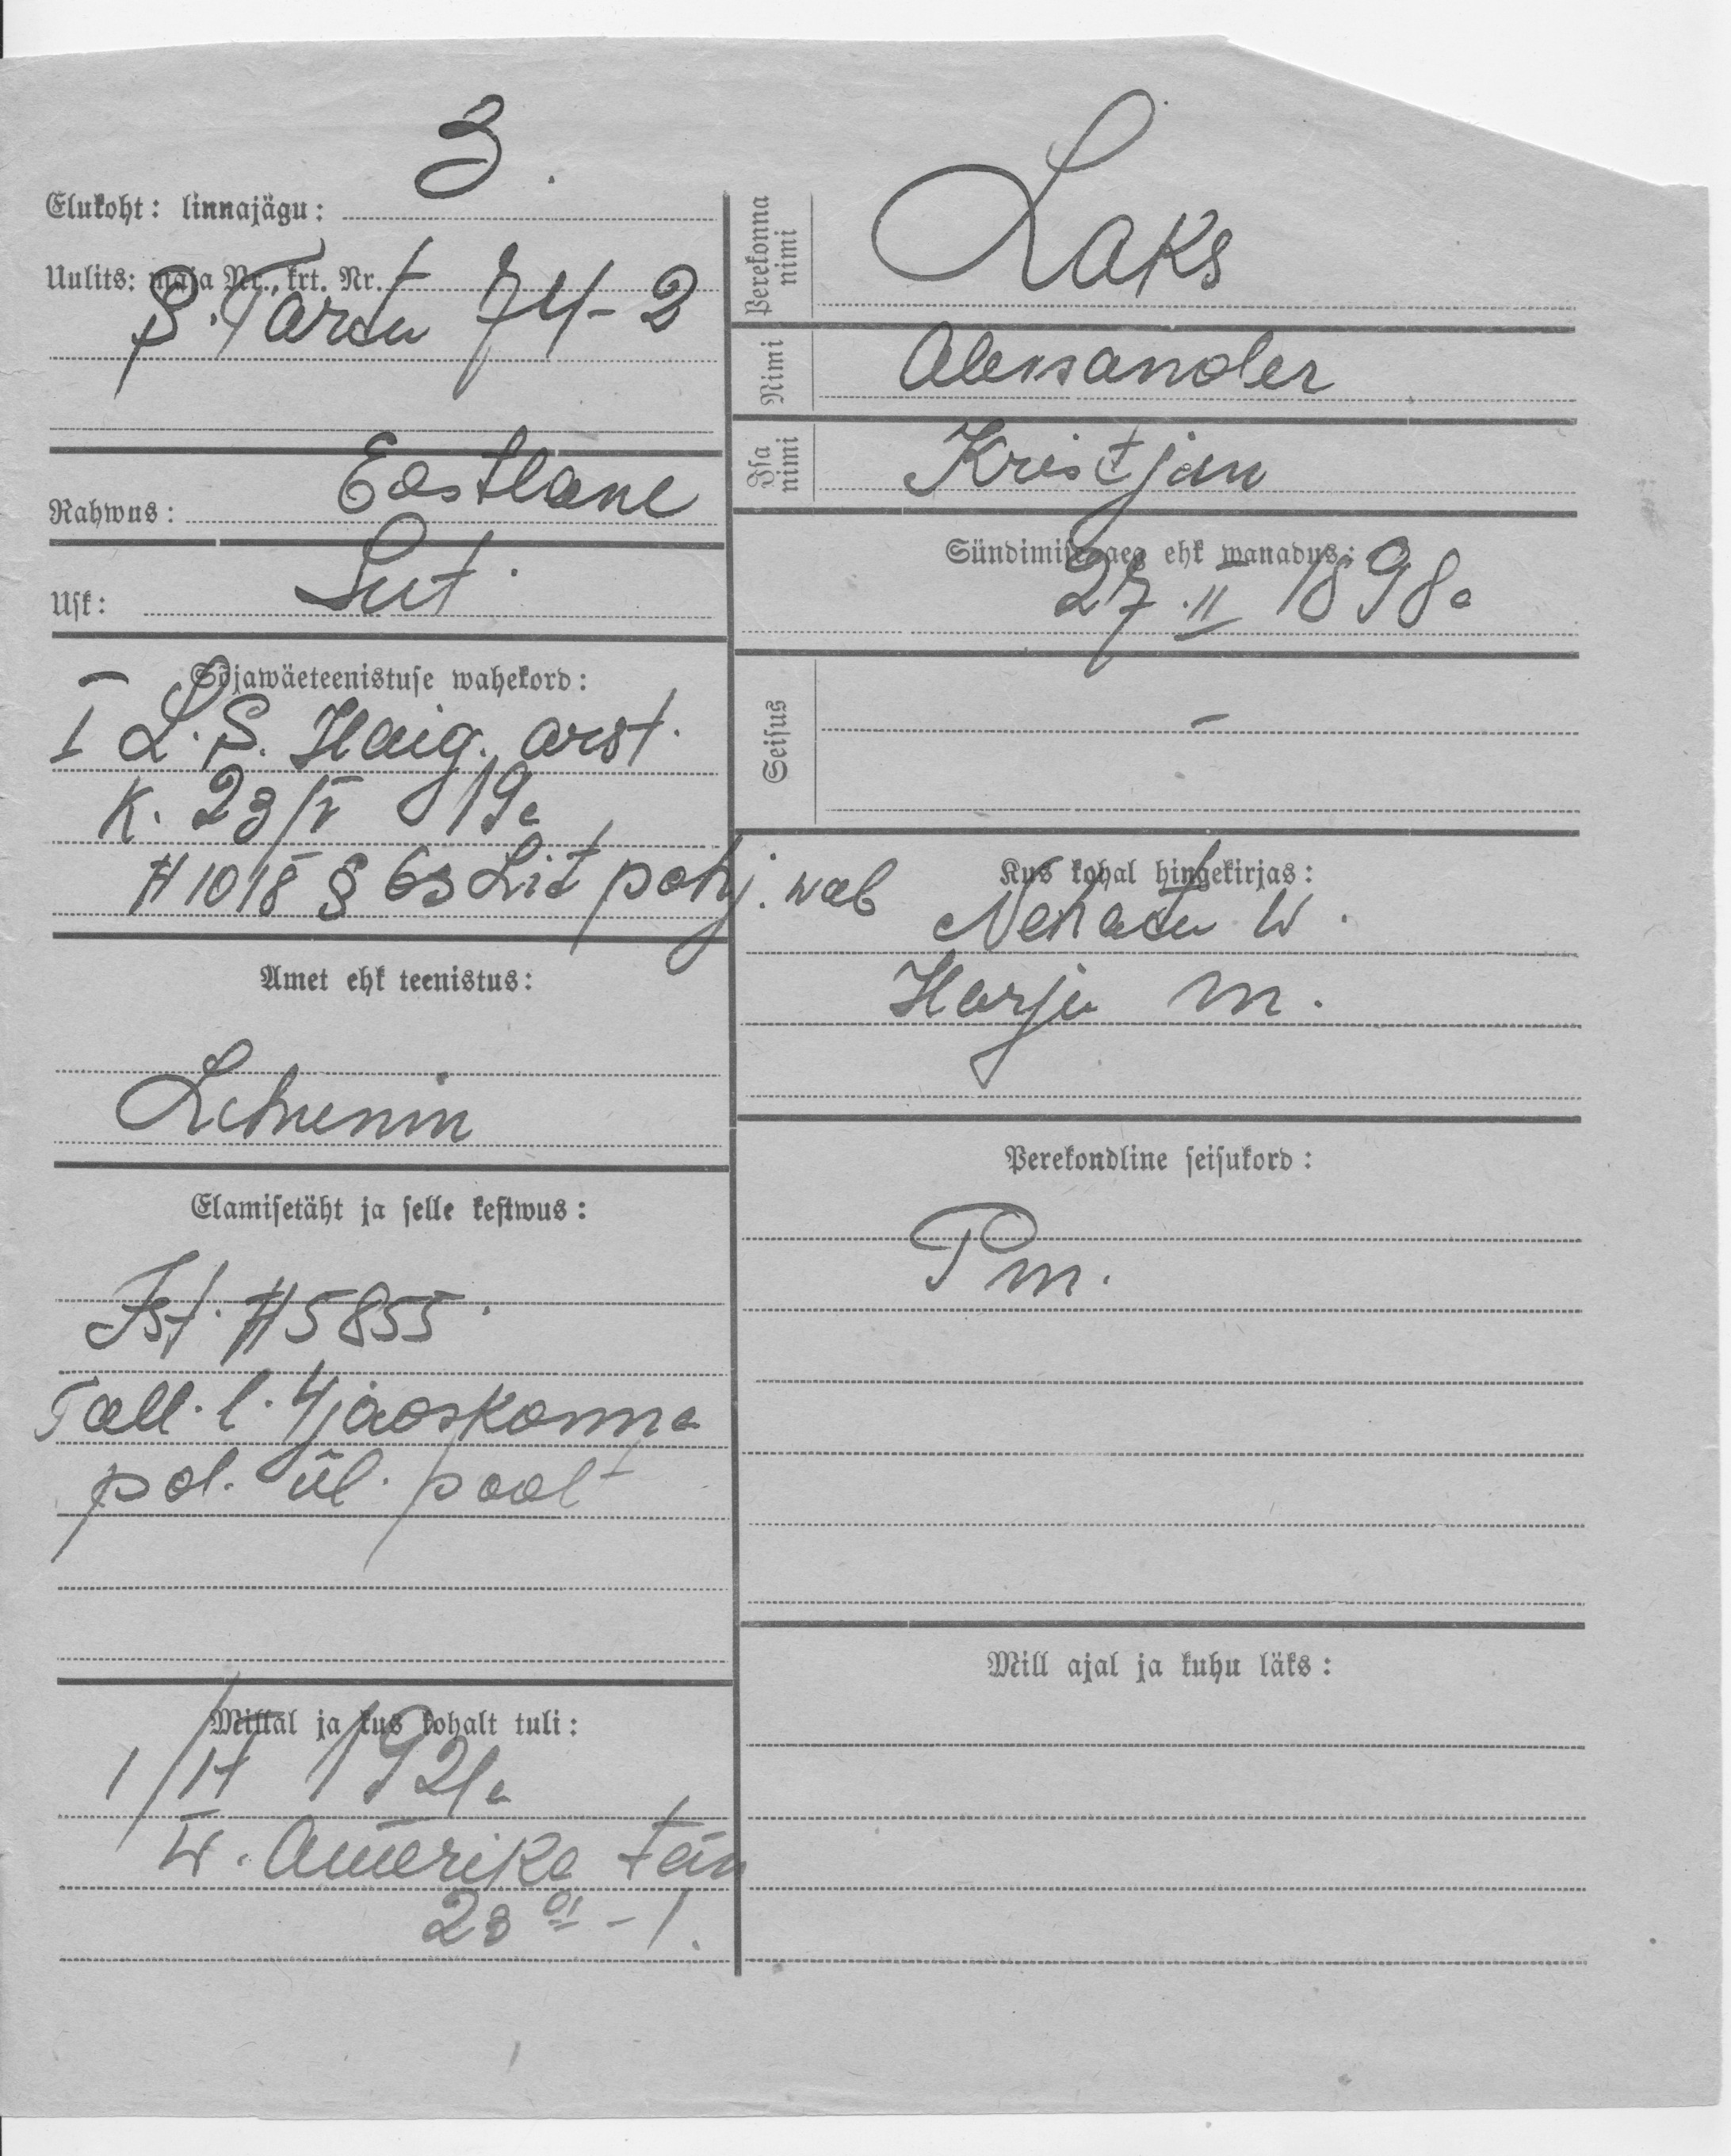 3.
Elukoht: linnajägu:
Uulits: maja Nr., krt. Nr.
S. Tartu 74-2
Rahwus: Eestlane
Usk: Lut.
Sõjawäeteenistuse wahekord:
I L. S. Haig. arst.
K. 23/V 19a
№ 1018 § 63 Lit pohj. wab
Amet ehk teenistus:
Elamisetäht ja selle kestwus:
Ist. № 5855.
Tall. l. 4 jaoskonna
pol. ül. poolt
Millal ja kus kohalt tuli:
1921a
W. Ameerika tän
23 01 - 1.
Perekonna nimi
Laks
Nimi
Aleksander
Isa nimi
Kristjan
Sündimise aeg ehk wanadus:
27. II 1898a
Seisus
-
Kus kohal hingekirjas:
Nehatu W.
Harju m.
Perekondline seisukord:
Pm.
Mill ajal ja kuhu läks: